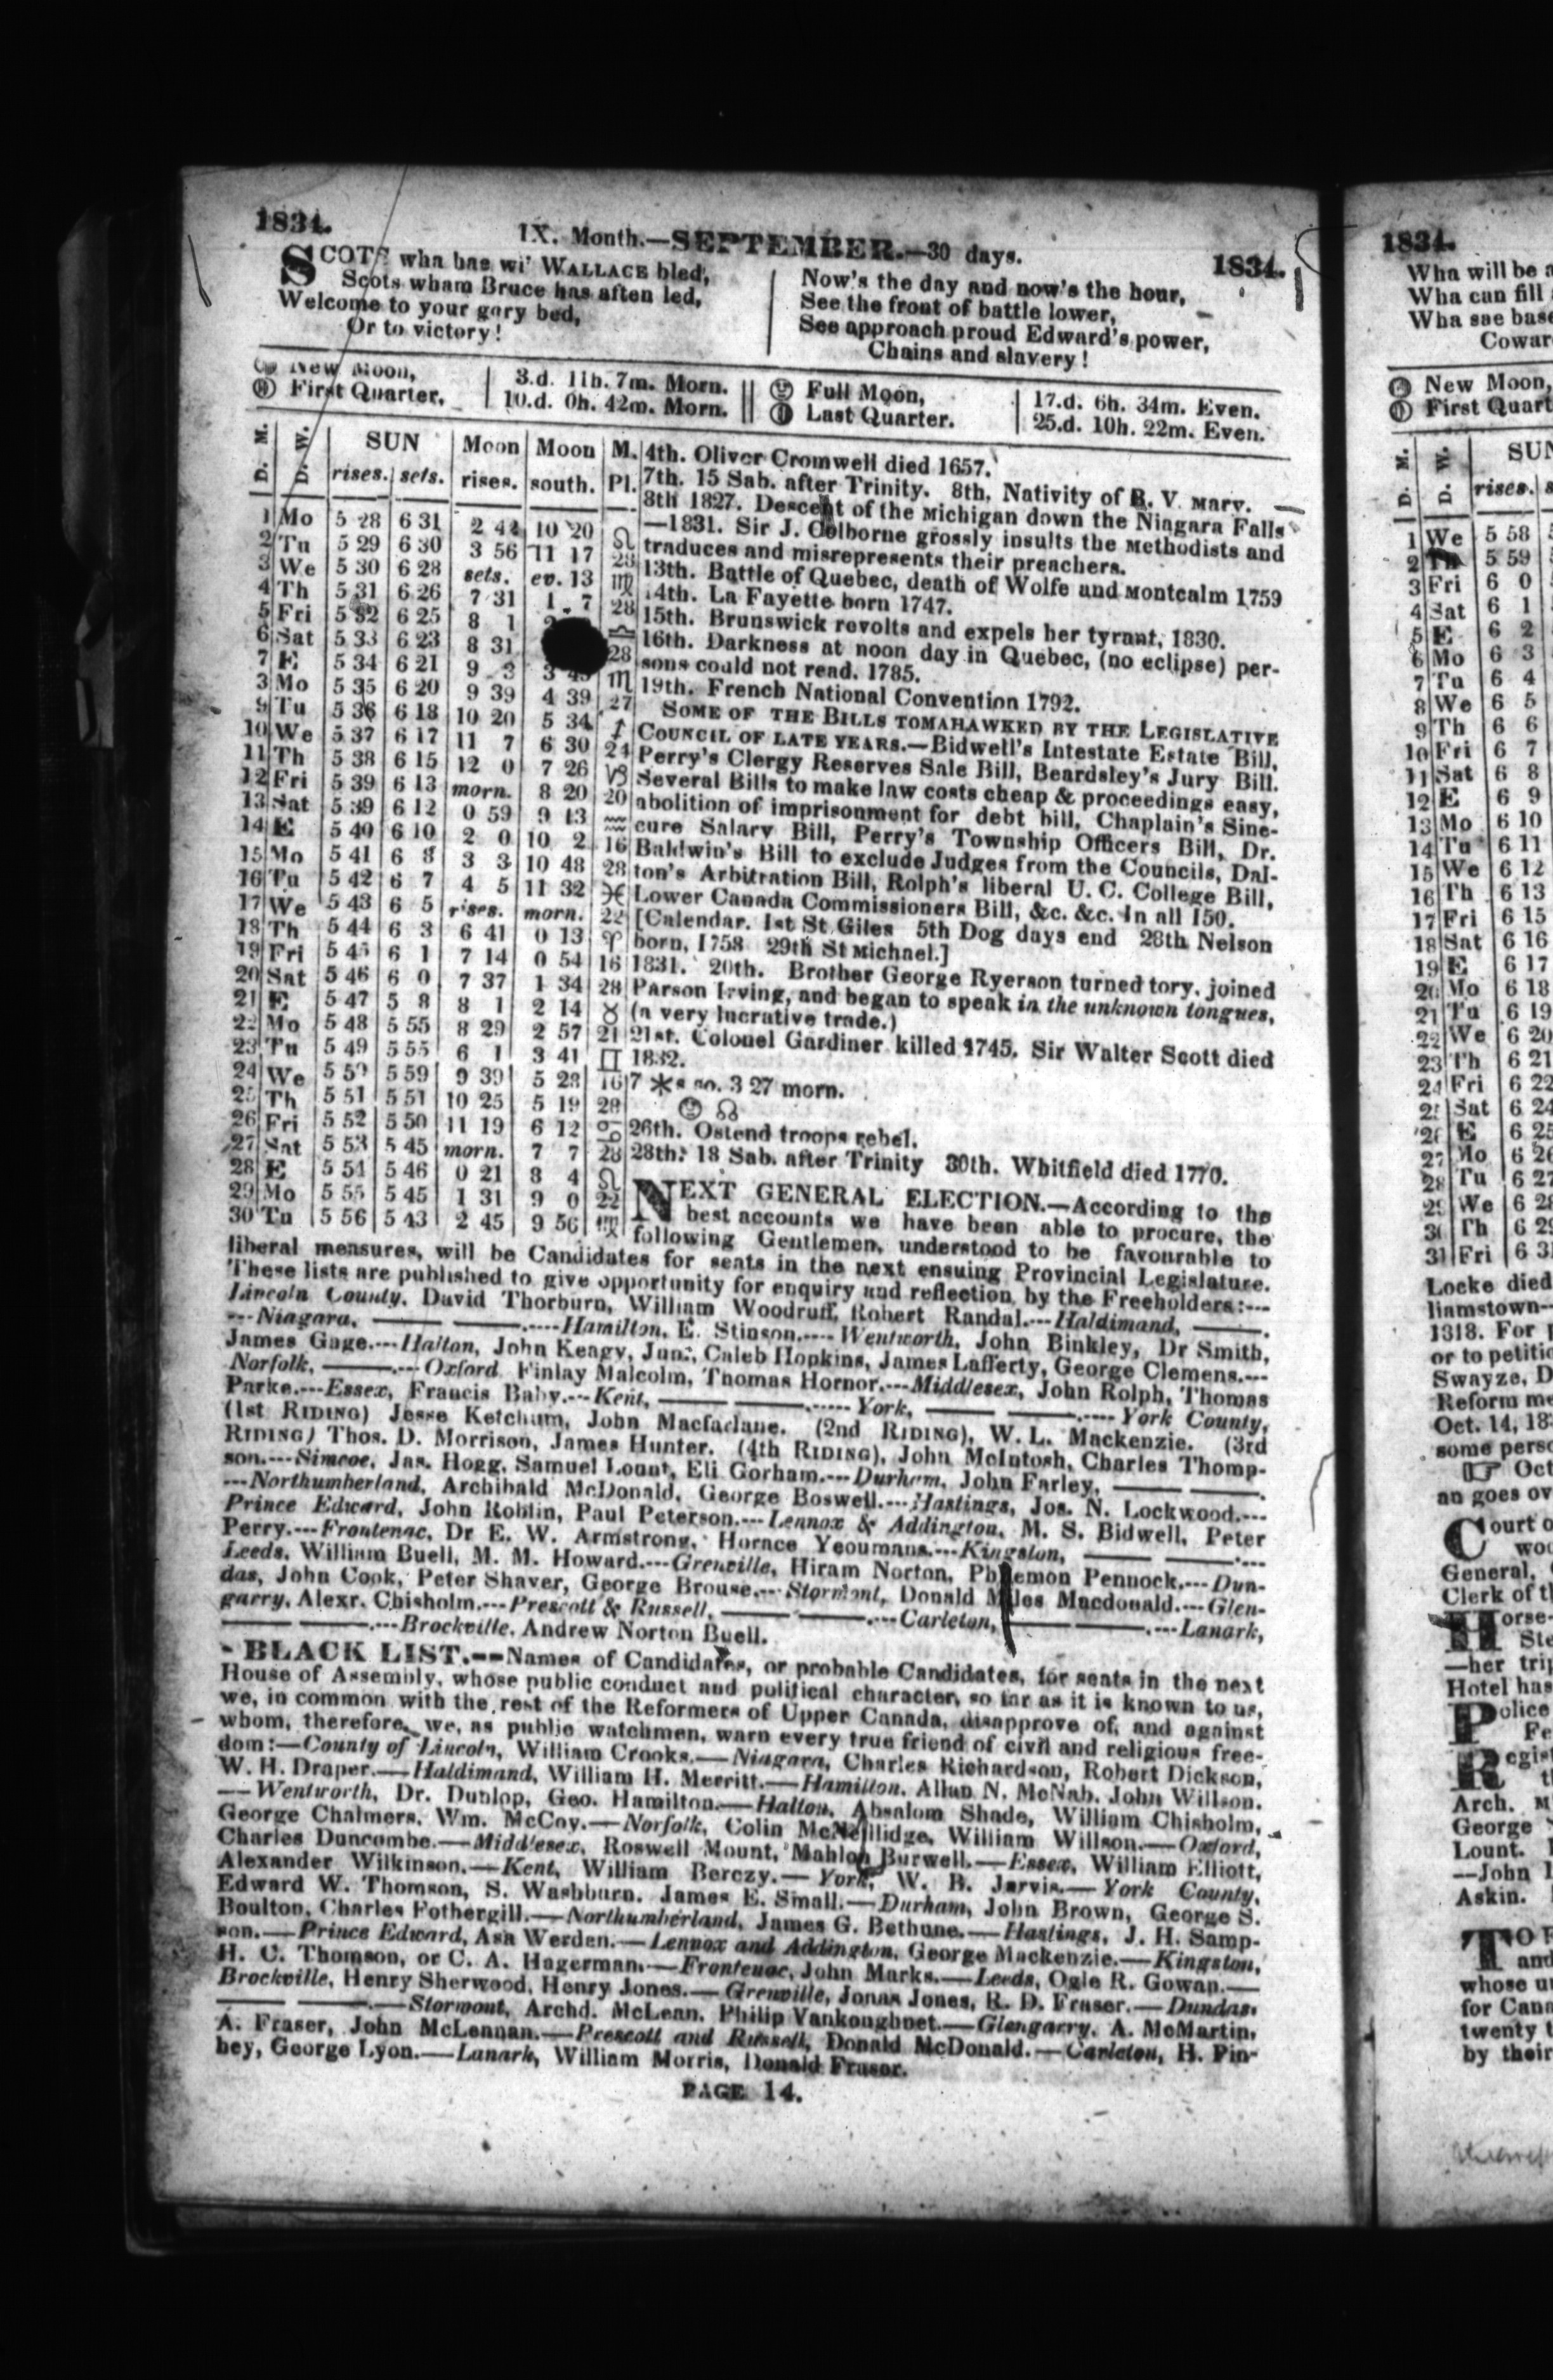 1834. IX. Month.—SEPTEMBER.—30 days. 1834.
SCOTS wha hae wi' WALLACE bled,
Scots wham Bruce has aften led,
Welcome to your gory bed,
Or to victory!
Now's the day and now's the hour,
See the front of battle lower,
See approach proud Edward's power,
Chains and slavery!
New Moon, 3.d. 11h. 7m. Morn.
First Quarter, 10.d. 0h. 42m. Morn.
Full Moon, 17.d. 6h. 34m. Even.
Last Quarter. 25.d. 10h. 22m. Even.
D. M. D. W. SUN rises. sets. Moon rises. Moon south. M. Pl.
1 Mo 5 28 6 31 2 44 10 20 ♌
2 Tu 5 29 6 30 3 56 11 17 23
3 We 5 30 6 28 sets. ev. 13 ♍
4 Th 5 31 6 26 7 31 1 7 28
5 Fri 5 32 6 25 8 1 ♎
6 Sat 5 33 6 23 8 31 28
7 E 5 34 6 21 9 3 3 ♏
8 Mo 5 35 6 20 9 39 4 39 27
9 Tu 5 36 6 18 10 20 5 34 ♐
10 We 5 37 6 17 11 7 6 30 24
11 Th 5 38 6 15 12 0 7 26 ♑
12 Fri 5 39 6 13 morn. 8 20 20
13 Sat 5 39 6 12 0 59 9 13 ♒
14 E 5 40 6 10 2 0 10 2 16
15 Mo 5 41 6 8 3 3 10 48 28
16 Tu 5 42 6 7 4 5 11 32 ♓
17 We 5 43 6 5 rises. morn. 22
18 Th 5 44 6 3 6 41 0 13 ♈
19 Fri 5 45 6 1 7 14 0 54 16
20 Sat 5 46 6 0 7 37 1 34 28
21 E 5 47 5 8 8 1 2 14 ♉
22 Mo 5 48 5 55 8 29 2 57 21
23 Tu 5 49 5 55 6 1 3 41 ♊
24 We 5 50 5 59 9 39 5 28 16
25 Th 5 51 5 51 10 25 5 19 28
26 Fri 5 52 5 50 11 19 6 12 ♋
27 Sat 5 53 5 45 morn. 7 7 23
28 E 5 54 5 46 0 21 8 4 ♌
29 Mo 5 55 5 45 1 31 9 0 22
30 Tu 5 56 5 43 2 45 9 56 ♍
4th. Oliver Cromwell died 1657.
7th. 15 Sab. after Trinity. 8th, Nativity of B. V. Mary. —
8th 1827. Descent of the Michigan down the Niagara Falls
—1831. Sir J. Colborne grossly insults the Methodists and
traduces and misrepresents their preachers.
13th. Battle of Quebec, death of Wolfe and Montcalm 1759
14th. La Fayette born 1747.
15th. Brunswick revolts and expels her tyrant, 1830.
16th. Darkness at noon day in Quebec, (no eclipse) per-
sons could not read. 1785.
19th. French National Convention 1792.
SOME OF THE BILLS TOMAHAWKED BY THE LEGISLATIVE
COUNCIL OF LATE YEARS.—Bidwell's Intestate Estate Bill,
Perry's Clergy Reserves Sale Bill, Beardsley's Jury Bill.
Several Bills to make law costs cheap & proceedings easy,
abolition of imprisonment for debt bill, Chaplain's Sine-
cure Salary Bill, Perry's Township Officers Bill, Dr.
Baldwin's Bill to exclude Judges from the Councils, Dal-
ton's Arbitration Bill, Rolph's liberal U. C. College Bill,
Lower Canada Commissioners Bill, &c. &c. In all 150.
[Calendar. 1st St Giles 5th Dog days end 28th Nelson
born, 1758 29th St Michael.]
1831. 20th. Brother George Ryerson turned tory, joined
Parson Irving, and began to speak in the unknown tongues,
(a very lucrative trade.)
21st. Colonel Gardiner killed 1745. Sir Walter Scott died
1832.
7 *s so. 3 27 morn.
☊
26th. Ostend troops rebel.
28th: 18 Sab. after Trinity 30th. Whitfield died 1770.
NEXT GENERAL ELECTION.—According to the
best accounts we have been able to procure, the
following Gentlemen, understood to be favourable to
liberal measures, will be Candidates for seats in the next ensuing Provincial Legislature.
These lists are published to give opportunity for enquiry and reflection by the Freeholders:---
Lincoln County. David Thorburn, William Woodruff, Robert Randal.---Haldimand, ——.
---Niagara, —— ——.----Hamilton, E. Stinson.----Wentworth, John Binkley, Dr Smith,
James Gage.---Halton, John Keagy, Jun., Caleb Hopkins, James Lafferty, George Clemens.---
Norfolk, ——.---Oxford Finlay Malcolm, Thomas Hornor.---Middlesex, John Rolph, Thomas
Parke.---Essex, Francis Baby.---Kent, —— ——.-----York, —— ——.----York County,
(1st RIDING) Jesse Ketchum, John Macfarlane. (2nd RIDING), W. L. Mackenzie. (3rd
RIDING) Thos. D. Morrison, James Hunter. (4th RIDING), John McIntosh, Charles Thomp-
son.---Simcoe, Jas. Hogg, Samuel Lount, Eli Gorham.---Durham, John Farley, —— ——.
---Northumberland, Archibald McDonald, George Boswell.---Hastings, Jos. N. Lockwood.---
Prince Edward, John Roblin, Paul Peterson.---Lennox & Addington, M. S. Bidwell, Peter
Perry.---Frontenac, Dr E. W. Armstrong, Horace Yeoumans.---Kingston, —— ——.---
Leeds, William Buell, M. M. Howard.---Grenville, Hiram Norton, Philemon Pennock.---Dun-
das, John Cook, Peter Shaver, George Brouse.---Stormont, Donald Miles Macdonald.---Glen-
garry, Alexr. Chisholm.---Prescott & Russell, —— ——.---Carleton, —— ——.---Lanark,
—— ——.---Brockville, Andrew Norton Buell.
BLACK LIST.--Names of Candidates, or probable Candidates, for seats in the next
House of Assembly, whose public conduct and political character, so far as it is known to us,
we, in common with the rest of the Reformers of Upper Canada, disapprove of, and against
whom, therefore, we, as public watchmen, warn every true friend of civil and religious free-
dom:—County of Lincoln, William Crooks.—Niagara, Charles Richardson, Robert Dickson,
W. H. Draper.—Haldimand, William H. Merritt.—Hamilton. Allan N. McNab, John Willson.
—Wentworth, Dr. Dunlop, Geo. Hamilton.—Halton, Absalom Shade, William Chisholm,
George Chalmers, Wm. McCoy.—Norfolk, Colin McNeillidge, William Willson.—Oxford,
Charles Duncombe.—Middlesex, Roswell Mount, Mahlon Burwell.—Essex, William Elliott,
Alexander Wilkinson.—Kent, William Berczy.—York, W. B. Jarvis.—York County,
Edward W. Thomson, S. Washburn, James E. Small.—Durham, John Brown, George S.
Boulton, Charles Fothergill.—Northumberland, James G. Bethune.—Hastings, J. H. Samp-
son.—Prince Edward, Asa Werden.—Lennox and Addington, George Mackenzie.—Kingston,
H. C. Thomson, or C. A. Hagerman.—Frontenac, John Marks.—Leeds, Ogle R. Gowan.—
Brockville, Henry Sherwood, Henry Jones.—Grenville, Jonas Jones, R. D. Fraser.—Dundas,
—— ——.—Stormont, Archd. McLean, Philip Vankoughnet.—Glengarry, A. McMartin,
A. Fraser, John McLennan.—Prescott and Russell, Donald McDonald.—Carleton, H. Pin-
hey, George Lyon.—Lanark, William Morris, Donald Fraser.
PAGE 14.
1834.
Wha will be a
Wha can fill
Wha sae base
Cowar
New Moon,
First Quart
D. M. D. W. SUN rises.
1 We 5 58
2 Th 5 59
3 Fri 6 0
4 Sat 6 1
5 E 6 2
6 Mo 6 3
7 Tu 6 4
8 We 6 5
9 Th 6 6
10 Fri 6 7
11 Sat 6 8
12 E 6 9
13 Mo 6 10
14 Tu 6 11
15 We 6 12
16 Th 6 13
17 Fri 6 15
18 Sat 6 16
19 E 6 17
20 Mo 6 18
21 Tu 6 19
22 We 6 20
23 Th 6 21
24 Fri 6 22
25 Sat 6 24
26 E 6 25
27 Mo 6 26
28 Tu 6 27
29 We 6 28
30 Th 6 29
31 Fri 6 3
Locke died
liamstown--
1318. For
or to petitio
Swayze, D
Reform me
Oct. 14, 18
some perso
☞ Oct
an goes ov
Court o
woo
General,
Clerk of th
Horse-
Ste
—her trip
Hotel has
Police
Fe
Regist
Arch. M
George
Lount.
—John
Askin.
TO F
and
whose u
for Cana
twenty t
by their